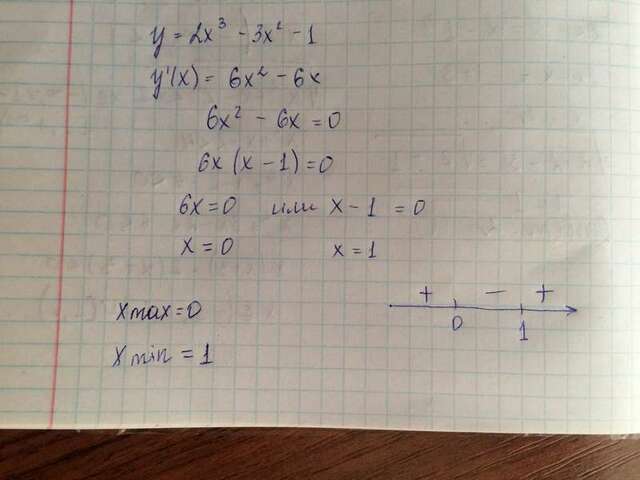 y = 2x³ - 3x² - 1
y'(x) = 6x² - 6x
6x² - 6x = 0
6x (x - 1) = 0
6x = 0 или x - 1 = 0
x = 0 x = 1
+ - +
0 1
x max = 0
x min = 1